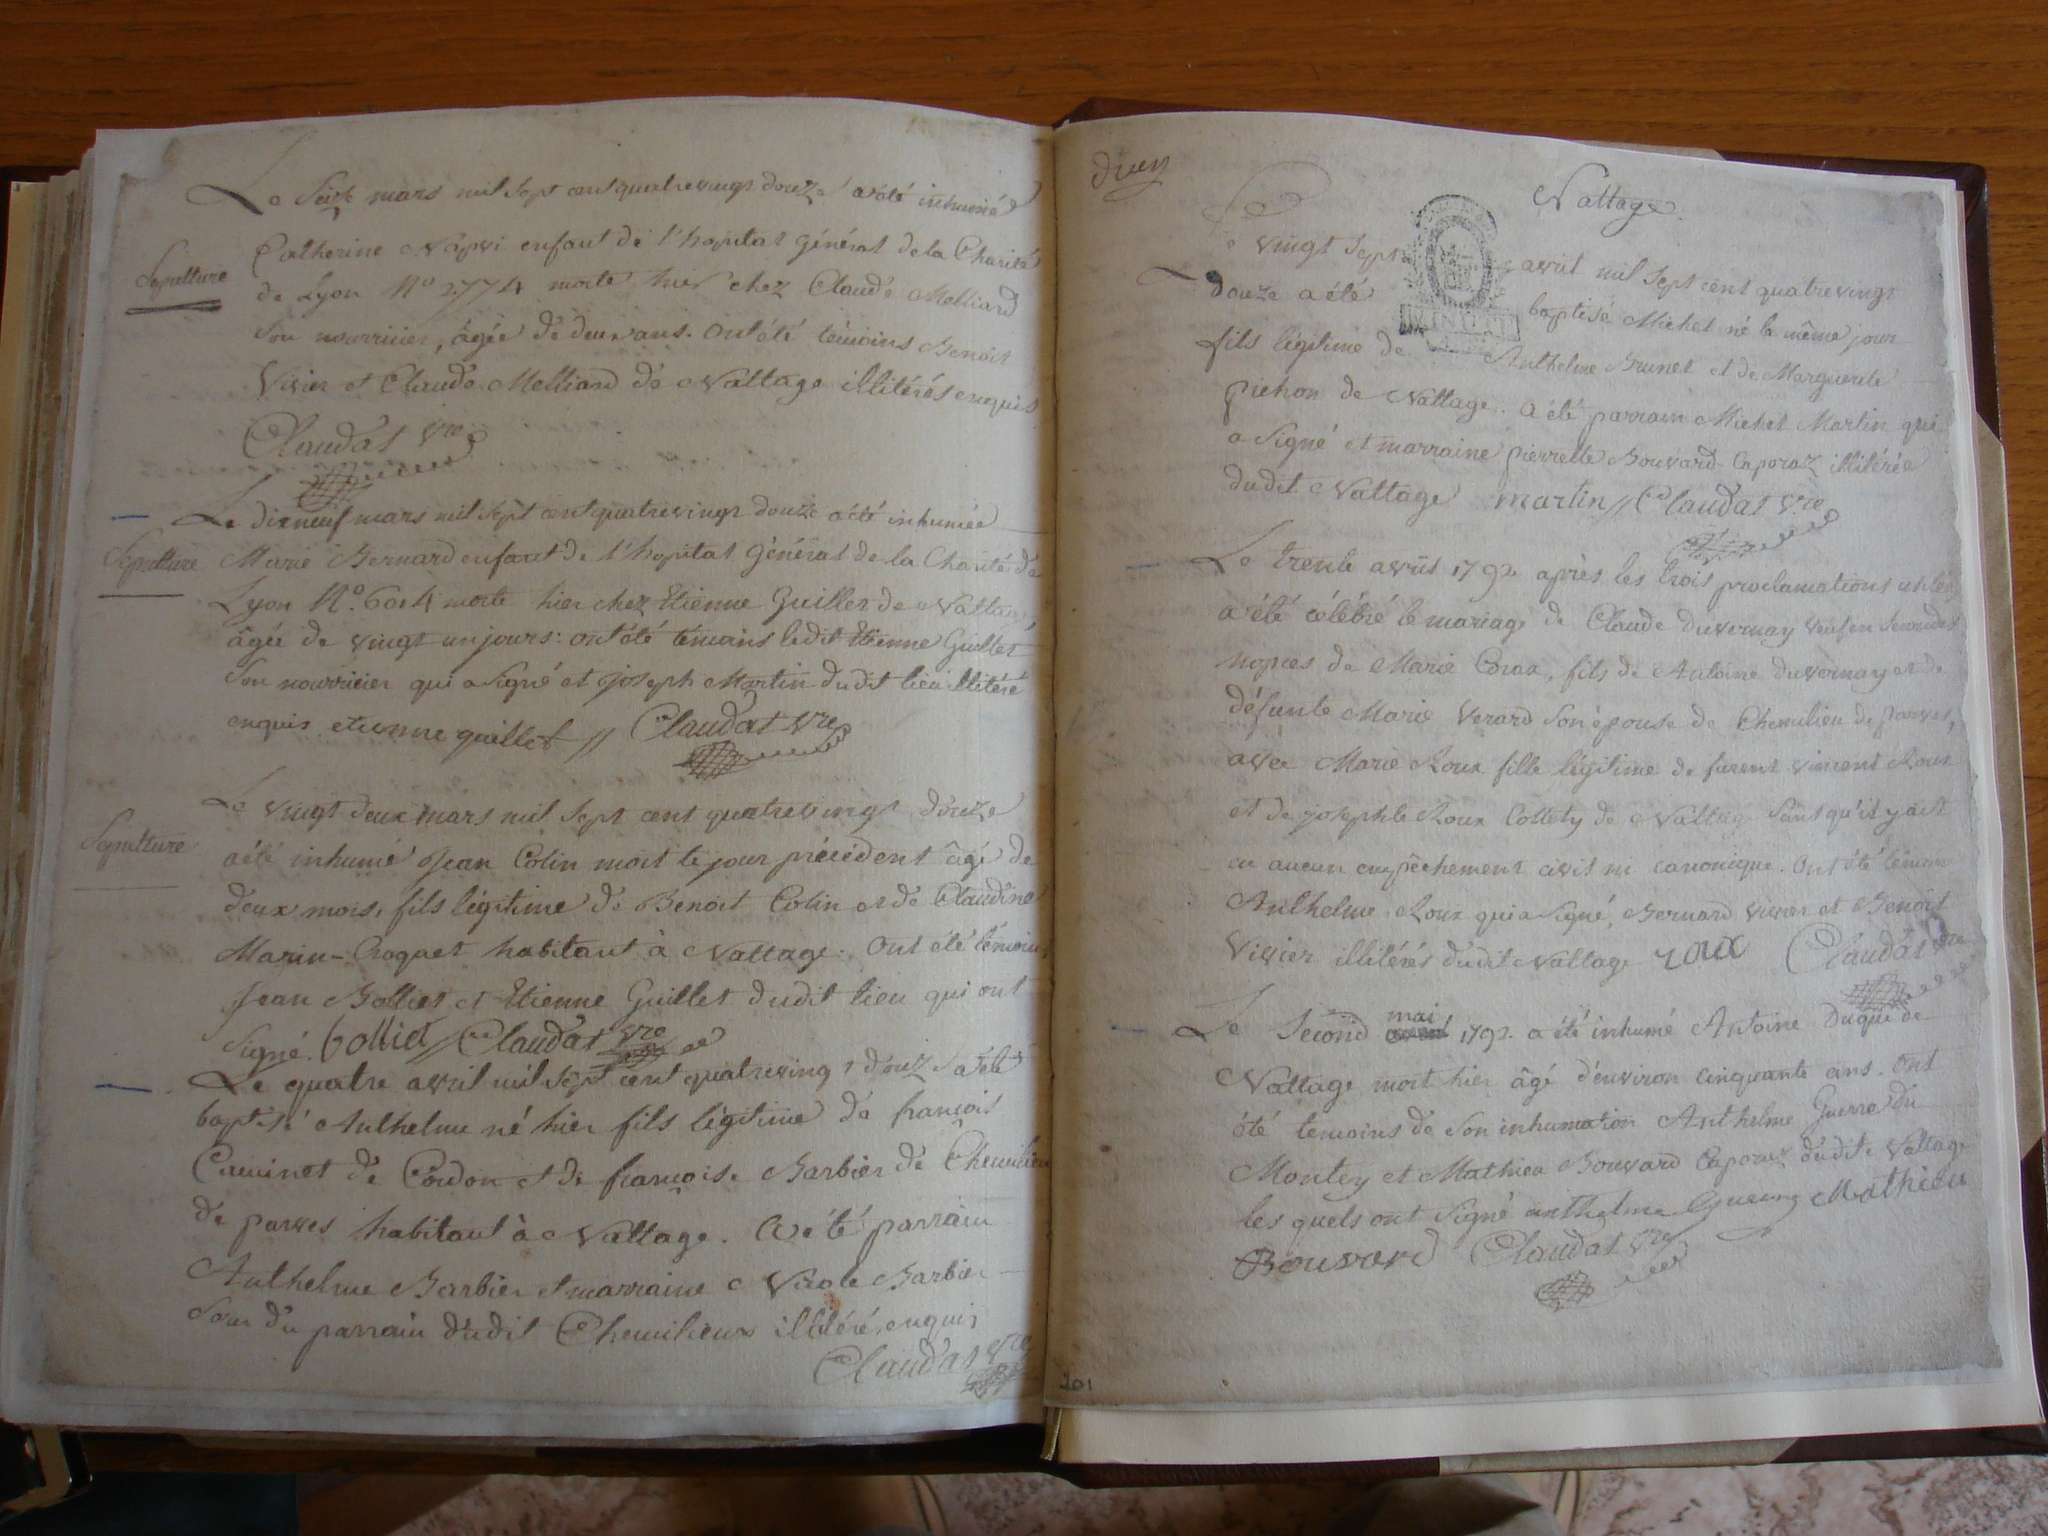 Le Seize mars mil Sept cent quatrevingt douze a été inhumée
Sepulture
Catherine enfant de l'hopital général de la Charité
de Lyon No 2774 morte hier chez Claude Melliard
Son nourricier, âgée de deux ans. Ont été témoins Benoit
Vivier et Claude Melliard de Nattage illitérés enquis
Claudat Vre
Le dixneuf mars mil Sept cent quatrevingt douze a été inhumée
Sepulture
Marie Bernard enfant de l'hopital général de la Charité de
Lyon No. 6014 morte hier chez Etienne Guillet de Nattage
âgée de vingt un jours: ont été témoins ledit Etienne Guillet
Son nourricier qui a Signé et joseph Martin dudit lieu illitéré
enquis etienne guillet // Claudat Vre
Le vingt deux mars mil Sept cent quatrevingt douze
Sepulture
a été inhumé Jean Colin mort le jour précédent âgé de
deux mois, fils légitime de Benoit Colin et de Claudine
Marin-Croquet habitant à Nattage. Ont été témoins
Jean Bolliet et Etienne Guillet dudit lieu qui ont
Signé. bolliet // Claudat Vre
Le quatre avril mil Sept cent quatrevingt douze a été
baptisé Anthelme né hier fils légitime de françois
Cuminet de Cordon et de françoise Barbier de Chemilieu
de parves habitant à Nattage. A été parrain
Anthelme Barbier et marraine Barbier
Soeur du parrain dudit Chemilieux illitérés enquis
Claudat Vre
Nattage
Le vingt Sept avril mil Sept cent quatrevingt
douze a été baptisé Michel né le même jour
fils légitime de Anthelme Brunet et de Marguerite
pichon de Nattage. a été parrain Michel Martin qui
a Signé et marraine pierrette Bouvard Caporaz illitérée
dudit Nattage martin // Claudat Vre
Le trente avril 1792 après les trois proclamations
a été célébré le mariage de Claude duvernay veuf en Secondes
nopces de Marie Croux, fils de Antoine duvernay et de
défunte Marie Verard Son épouse de Chemilieu de parves,
avec Marie Roux fille légitime de furent vincent Roux
et de josephte Roux Collety de Nattage Sans qu'il y ait
eu aucun empêchement civil ni canonique. Ont été témoins
Anthelme Roux qui a Signé, Bernard Vivier et Benoit
Vivier illitérés dudit Nattage roux Claudat Vre
Le Second mai 1792. a été inhumé Antoine Duqué de
Nattage mort hier âgé d'environ cinquante ans. Ont
été temoins de Son inhumation Anthelme Guerre du
Montey et Mathieu Bouvard Caporaz dudit Nattage
les quels ont Signé anthelme Guerre Mathieu
Bouvard Claudat Vre
201